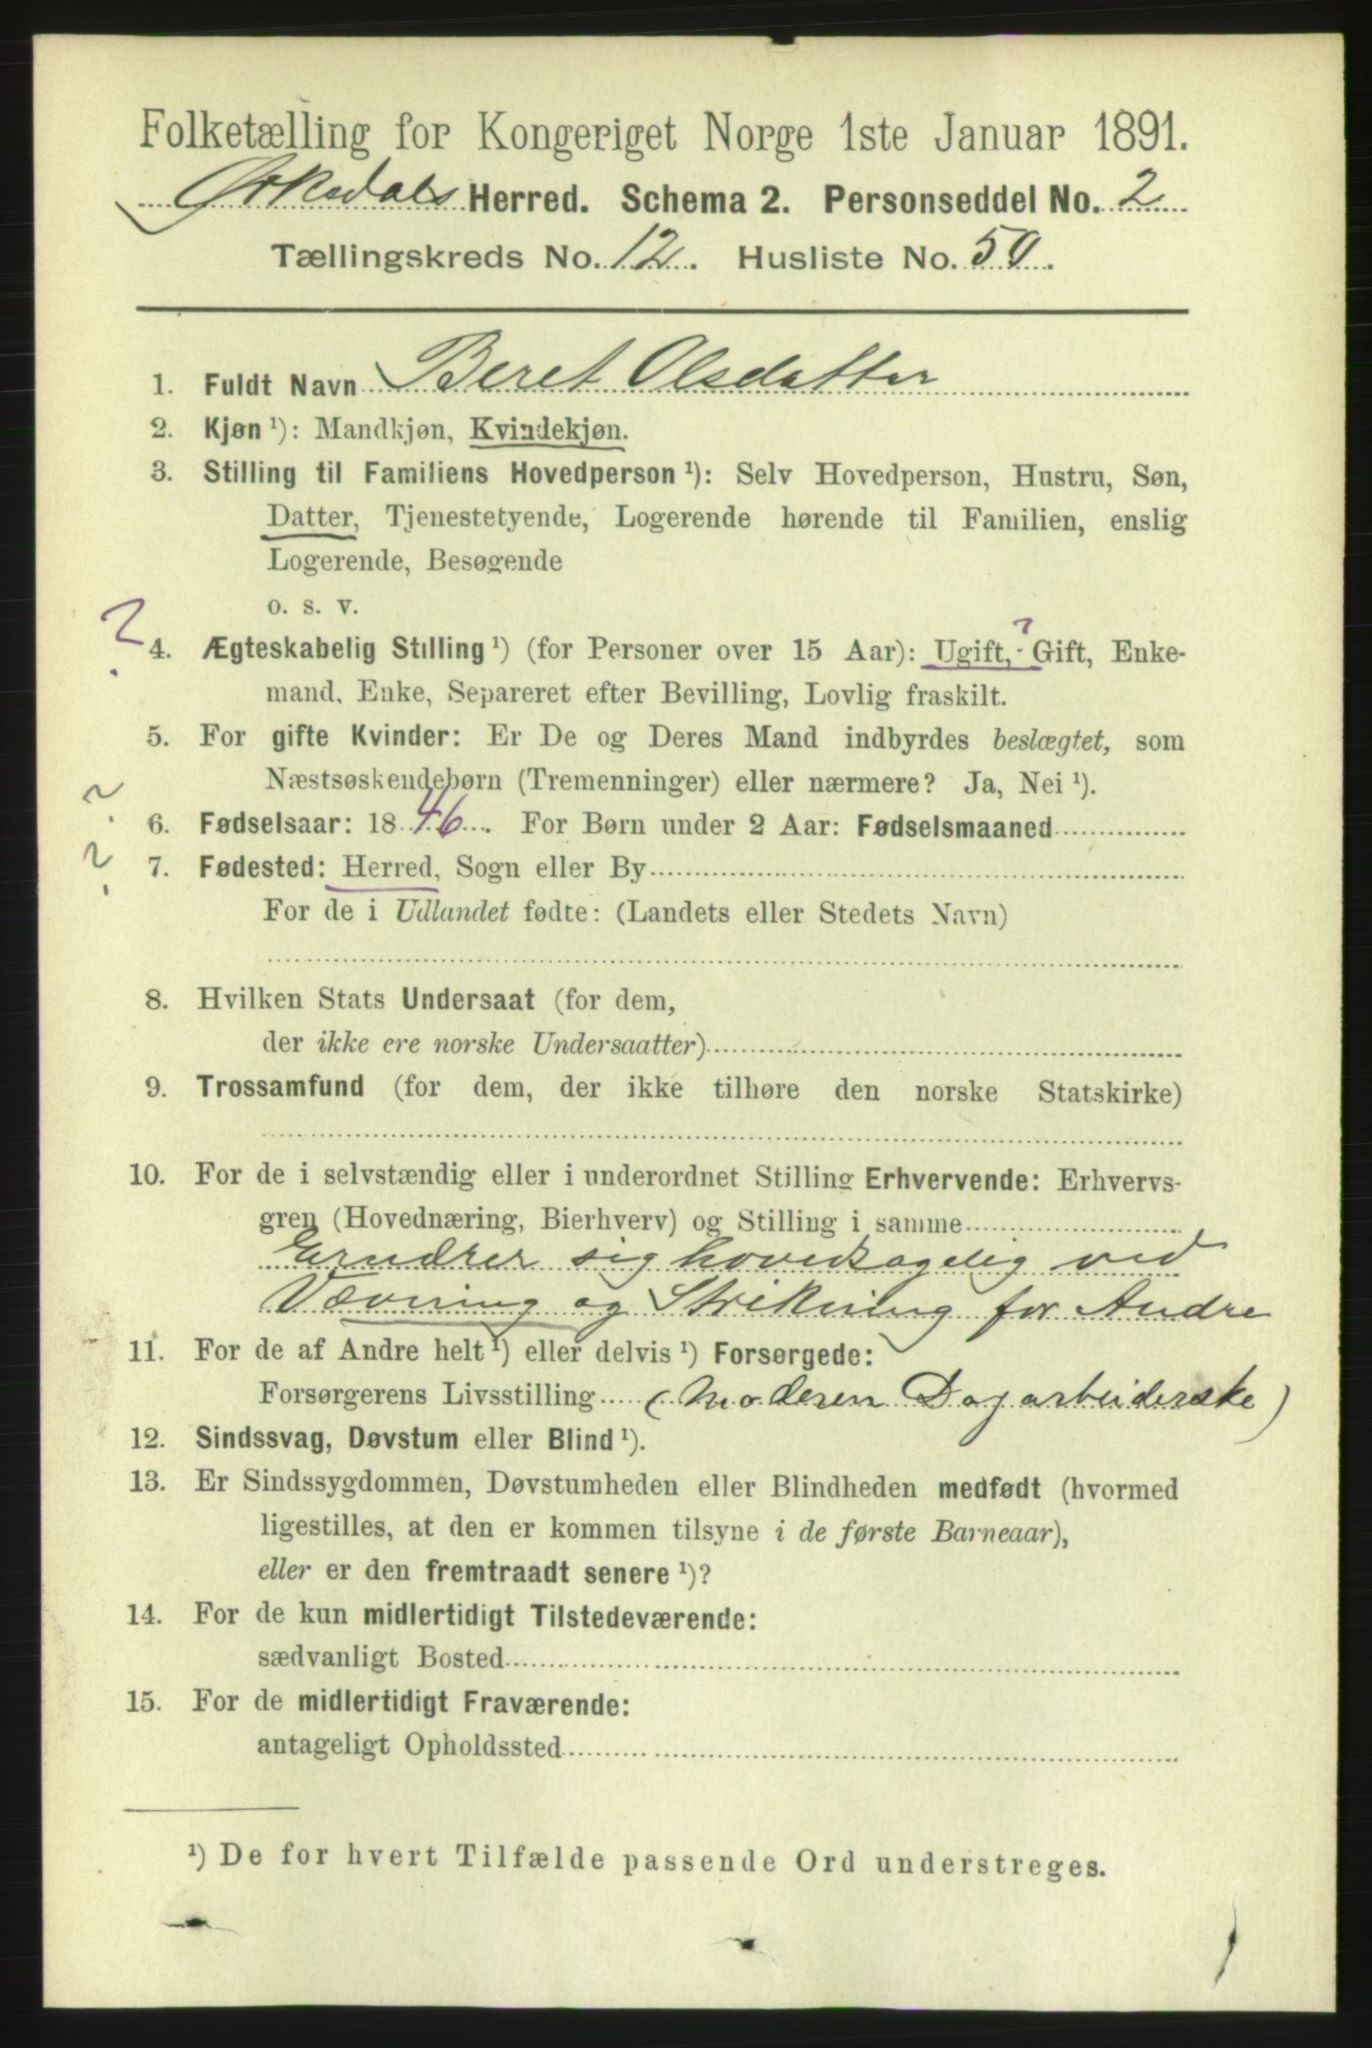 Folketælling for Kongeriget Norge 1ste Januar 1891.
Orkedals Herred. Schema 2. Personseddel No. 2
Tællingskreds No. 12. Husliste No. 50.
1. Fuldt Navn Beret Olsdatter
2. Kjøn ¹): Mandkjøn, Kvindekjøn.
3. Stilling til Familiens Hovedperson ¹): Selv Hovedperson, Hustru, Søn,
Datter, Tjenestetyende, Logerende hørende til Familien, enslig
Logerende, Besøgende
o. s. v.
?
?
4. Ægteskabelig Stilling ¹) (for Personer over 15 Aar): Ugift, Gift, Enke-
mand, Enke, Separeret efter Bevilling, Lovlig fraskilt.
5. For gifte Kvinder: Er De og Deres Mand indbyrdes beslægtet, som
Næstsøskendebørn (Tremenninger) eller nærmere? Ja, Nei ¹).
?
6. Fødselsaar: 1846. For Børn under 2 Aar: Fødselsmaaned
?
7. Fødested: Herred, Sogn eller By
For de i Udlandet fødte: (Landets eller Stedets Navn)
8. Hvilken Stats Undersaat (for dem,
der ikke ere norske Undersaatter)
9. Trossamfund (for dem, der ikke tilhøre den norske Statskirke)
10. For de i selvstændig eller i underordnet Stilling Erhvervende: Erhvervs-
gren (Hovednæring, Bierhverv) og Stilling i samme
Ernærer sig hovedsagelig ved
Vævning og Strikning for Andre
11. For de af Andre helt ¹) eller delvis ¹) Forsørgede:
Forsørgerens Livsstilling (Moderen Dagarbeiderske)
12. Sindssvag, Døvstum eller Blind ¹).
13. Er Sindssygdommen, Døvstumheden eller Blindheden medfødt (hvormed
ligestilles, at den er kommen tilsyne i de første Barneaar),
eller er den fremtraadt senere ¹)?
14. For de kun midlertidigt Tilstedeværende:
sædvanligt Bosted
15. For de midlertidigt Fraværende:
antageligt Opholdssted
¹) De for hvert Tilfælde passende Ord understreges.